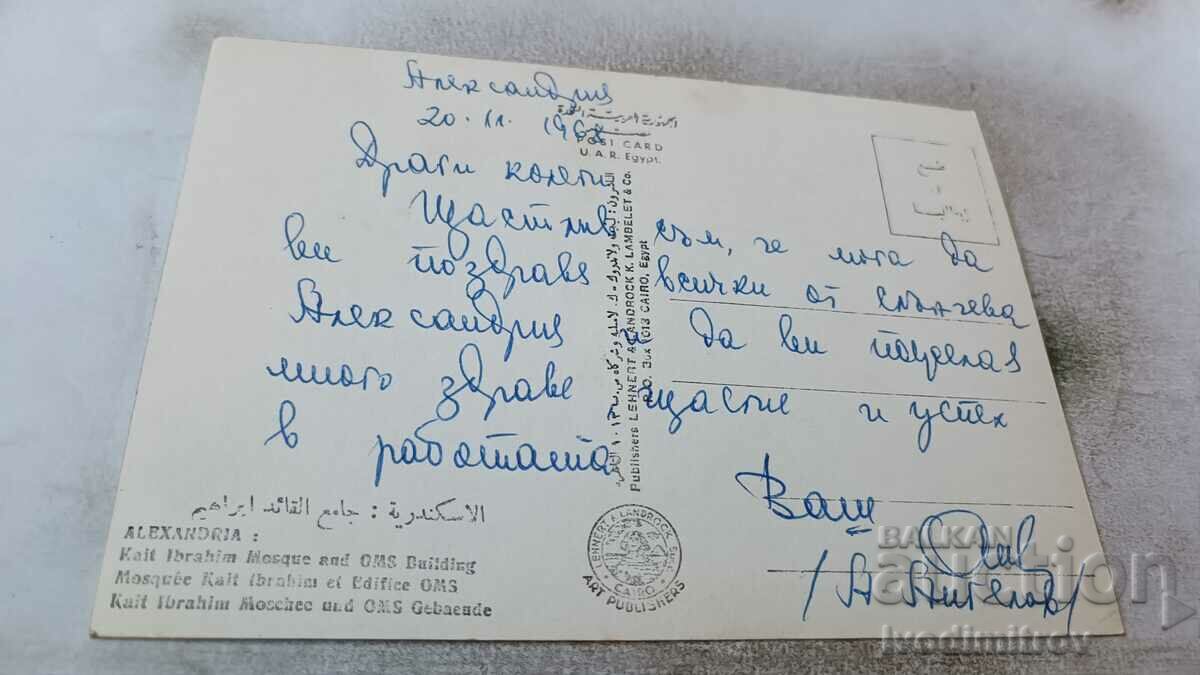 Александрия
20.11.1968
الجمهورية العربية المتحدة
POST CARD
U.A.R. Egypt.
Драги колеги
Щастлив съм, че мога да
ви поздравя всички от слънчева
Александрия и да ви пожелая
много здраве щастие и успех
в работата
Ваш
/А Ангелов/
Publishers LEHNERT & LANDROCK K. LAMBELET & Co.
P.O. Box 1013 CAIRO, Egypt
الاسكندرية : جامع القائد ابراهيم
ALEXANDRIA :
Kait Ibrahim Mosque and OMS Building
Mosquée Kait Ibrahim et Edifice OMS
Kait Ibrahim Moschee und OMS Gebaeude
LEHNERT & LANDROCK
CAIRO
ART PUBLISHERS
BALKAN
auction
Ivodimitrov